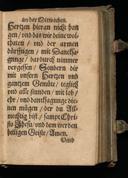 an der Mittwochen.
Hertzen hieran nicht han
gen / und das wir deine wol-
thaten / und der armen
dürfftigen / mit Dancksa-
gunge / dardurch nimmer
vergessen / Sondern die
mit unsern Hertzen und
gantzem Gemüte / teglich
und alle stunden / mit lob /
ehr / und dancksagunge die-
nen mügen / der du All-
mechtig bist / sampt Chri-
sto Jhesu / und dem werden
heiligen Geiste / Amen.